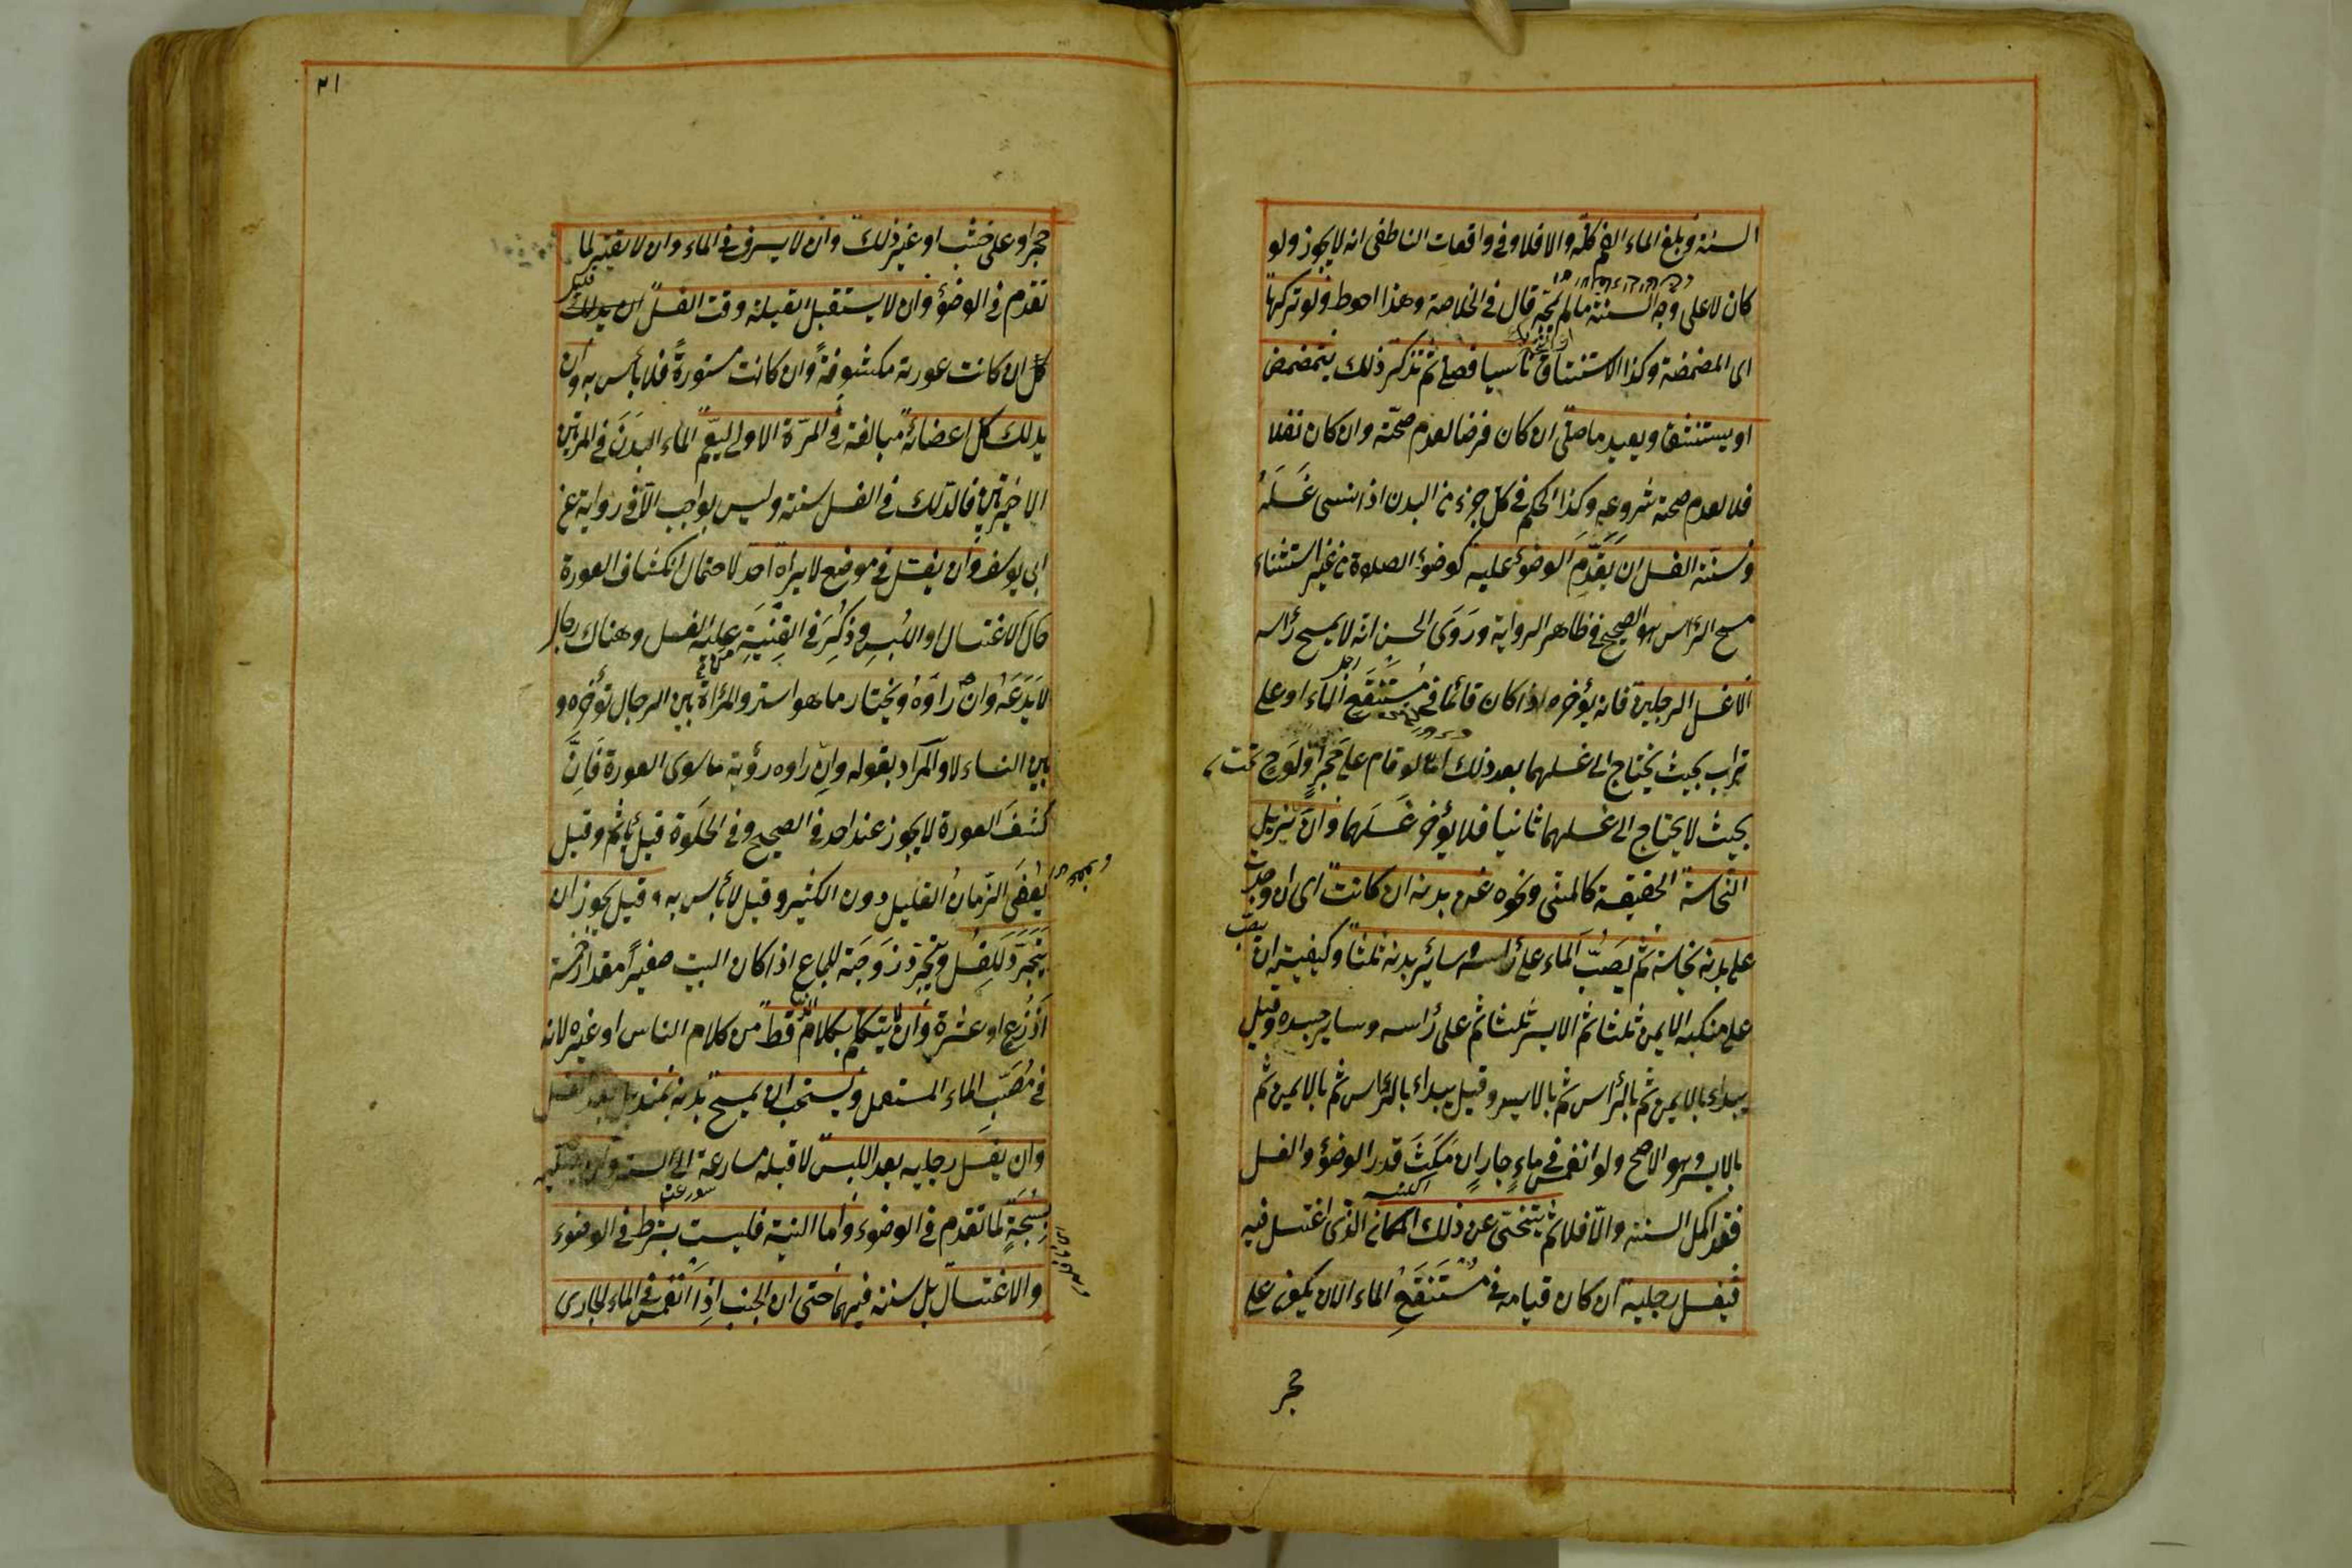 السنة وبلغ الماء الفم كله والا فلا وفى واقعات الناطفى انه لا يجوز ولو
كان لا على وجه السنة ما لم يمجّه قال فى الخلاصة وهذا احوط ولو تركها
اى المضمضة وكذا الاستنشاق ناسيا فصلى ثم تذكر ذلك يتمضمض
او يستنشق ويعيد ما صلّى ان كان فرضا لعدم صحّته وان كان نفلا
فلا لعدم صحة شروعه وكذا الحكم فى كل جزء من البدن اذا نسى غَسَلَهُ
وسنّة الغسل ان يُقَدِّمَ الوضؤ عليه كوضؤ الصلاة من غير استثناء
مسح الرأس هو الصحيح فى ظاهر الرواية ورَوَى الحسن انه لا يمسح رأسه
الا غسل الرجلين فانه يؤخره اذا كان قائما فى مُسْتَنْقَعِ الماء او على
تراب بحيث يحتاج الى غسلهما بعد ذلك اما لو قام على حَجَرٍ او لَوحٍ
بحيث لا يحتاج الى غسلهما ثانيا فلا يؤخر غَسَلَهما وان يزيل
النجاسة الحقيقية كالمنى ونحوه عن بدنه ان كانت اى ان وجدت
على بدنه نجاسة ثم يَصُبُّ الماء على رأسه وسائر بدنه ثلثا وكيفيته ان يصب
على منكبه الايمن ثلثا ثم الايسر ثلثا ثم على رأسه وساير جسده وقيل
يبداء بالايمن ثم بالرأس ثم بالايسر وقيل يبداء بالرأس ثم بالايمن ثم
بالايسر وهو الاصح ولو انغمس فى ماءٍ جارٍ ان مَكَثَ قدر الوضؤ والغسل
فقد اكمل السنة والّا فلا ثم يتنحّى عن ذلك المكان الذى اغتسل فيه
فيغسل رجليه ان كان قيامه فى مُسْتَنْقَعِ الماء الا ان يكون على
حجر
٢١
حجر او على خشب او غير ذلك وان لا يسرف فى الماء وان لا يقتر لما
تقدم فى الوضؤ وان لا يستقبل القبلة وقت الغسل
ان كانت عورته مكشوفةً وان كانت مستورةً فلا بأس به وان
يدلك كل اعضائه مبالغة فى المرّة الاولى ليعُمّ الماء البَدَنَ فى المرتين
الاخيرتين فالدلك فى الغسل سنة وليس بواجب الّا فى رواية عن
ابى يوسف وان يغتسل فى موضع لا يراه احد لاحتمال انكشاف العورة
حال الاغتسال او اللُبسِ وذُكِرَ فى القنيَةِ عليه الغسل وهناك رجال
لا يَدَعُهُ وان رأَوْهُ ويختار ما هو استر والمرأة بين الرجال تؤخره و
بين النساء لا والمراد بقوله وان راوه رؤية ما سوى العورة فَاِنَّ
كشفَ العورة لا يجوز عند احد فى الصحيح وفى الخلوة قيل يأثم وقيل
يُعفَى الزمانُ القليل دون الكثير وقيل لا بأس به وقيل يجوز ان
يَتَجَرَّدَ للغسل وتجرّد زَوجَته للجماع اذا كان البيت صغيراً مقدار خمسة
اَذرُع او عشرة وان لا يتكلم بكلام قط من كلام الناس او غيره لانه
فى مَصَبِّ الماء المستعمل ويستحب ان يمسح بدنه بمنديل بعد الغسل
وان يغسل رجليه بعد اللبس لا قبله مسارعة الى الستر وان يصلى
سُبْحَةً لما تقدم فى الوضوء واما النية فليست بشرط فى الوضوء
والاغتسال بل سنة فيهما حتى ان الجنب اذا انغمس فى الماء الجارى